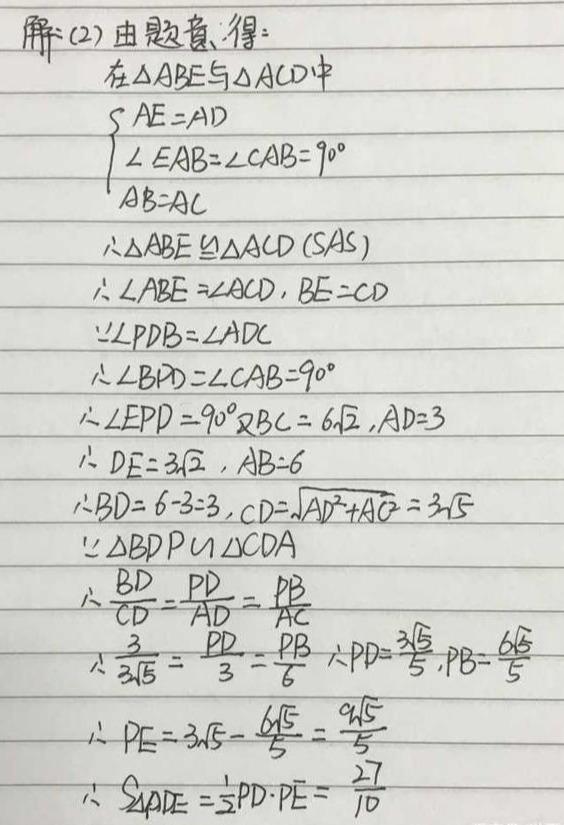 解:(2)由题意,得:
在△ABE与△ACD中
AE=AD
∠EAB=∠CAB=90°
AB=AC
∴△ABE≌△ACD(SAS)
∴∠ABE=∠ACD,BE=CD
∵∠PDB=∠ADC
∴∠BPD=∠CAB=90°
∴∠EPD=90°又BC=6√2,AD=3
∴DE=3√2,AB=6
∴BD=6-3=3,CD=√(AD²+AC²)=3√5
∵△BDP∽△CDA
∴BD/CD=PD/AD=PB/AC
∴3/3√5=PD/3=PB/6 ∴PD=3√5/5,PB=6√5/5
∴PE=3√5-6√5/5=9√5/5
∴S△PDE=1/2PD·PE=27/10